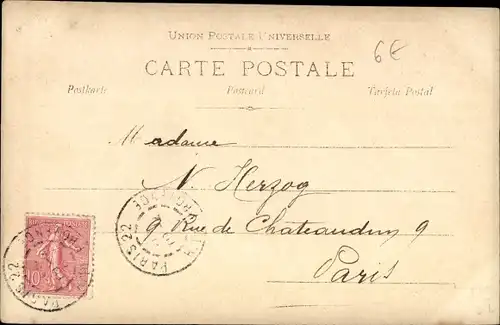 UNION POSTALE UNIVERSELLE
6€
CARTE POSTALE
Postkarte Postcard Tarjeta Postal
Madame
V. Herzog
9 Rue de Chateaudun 9
Paris
PARIS 22
10
PARIS 22